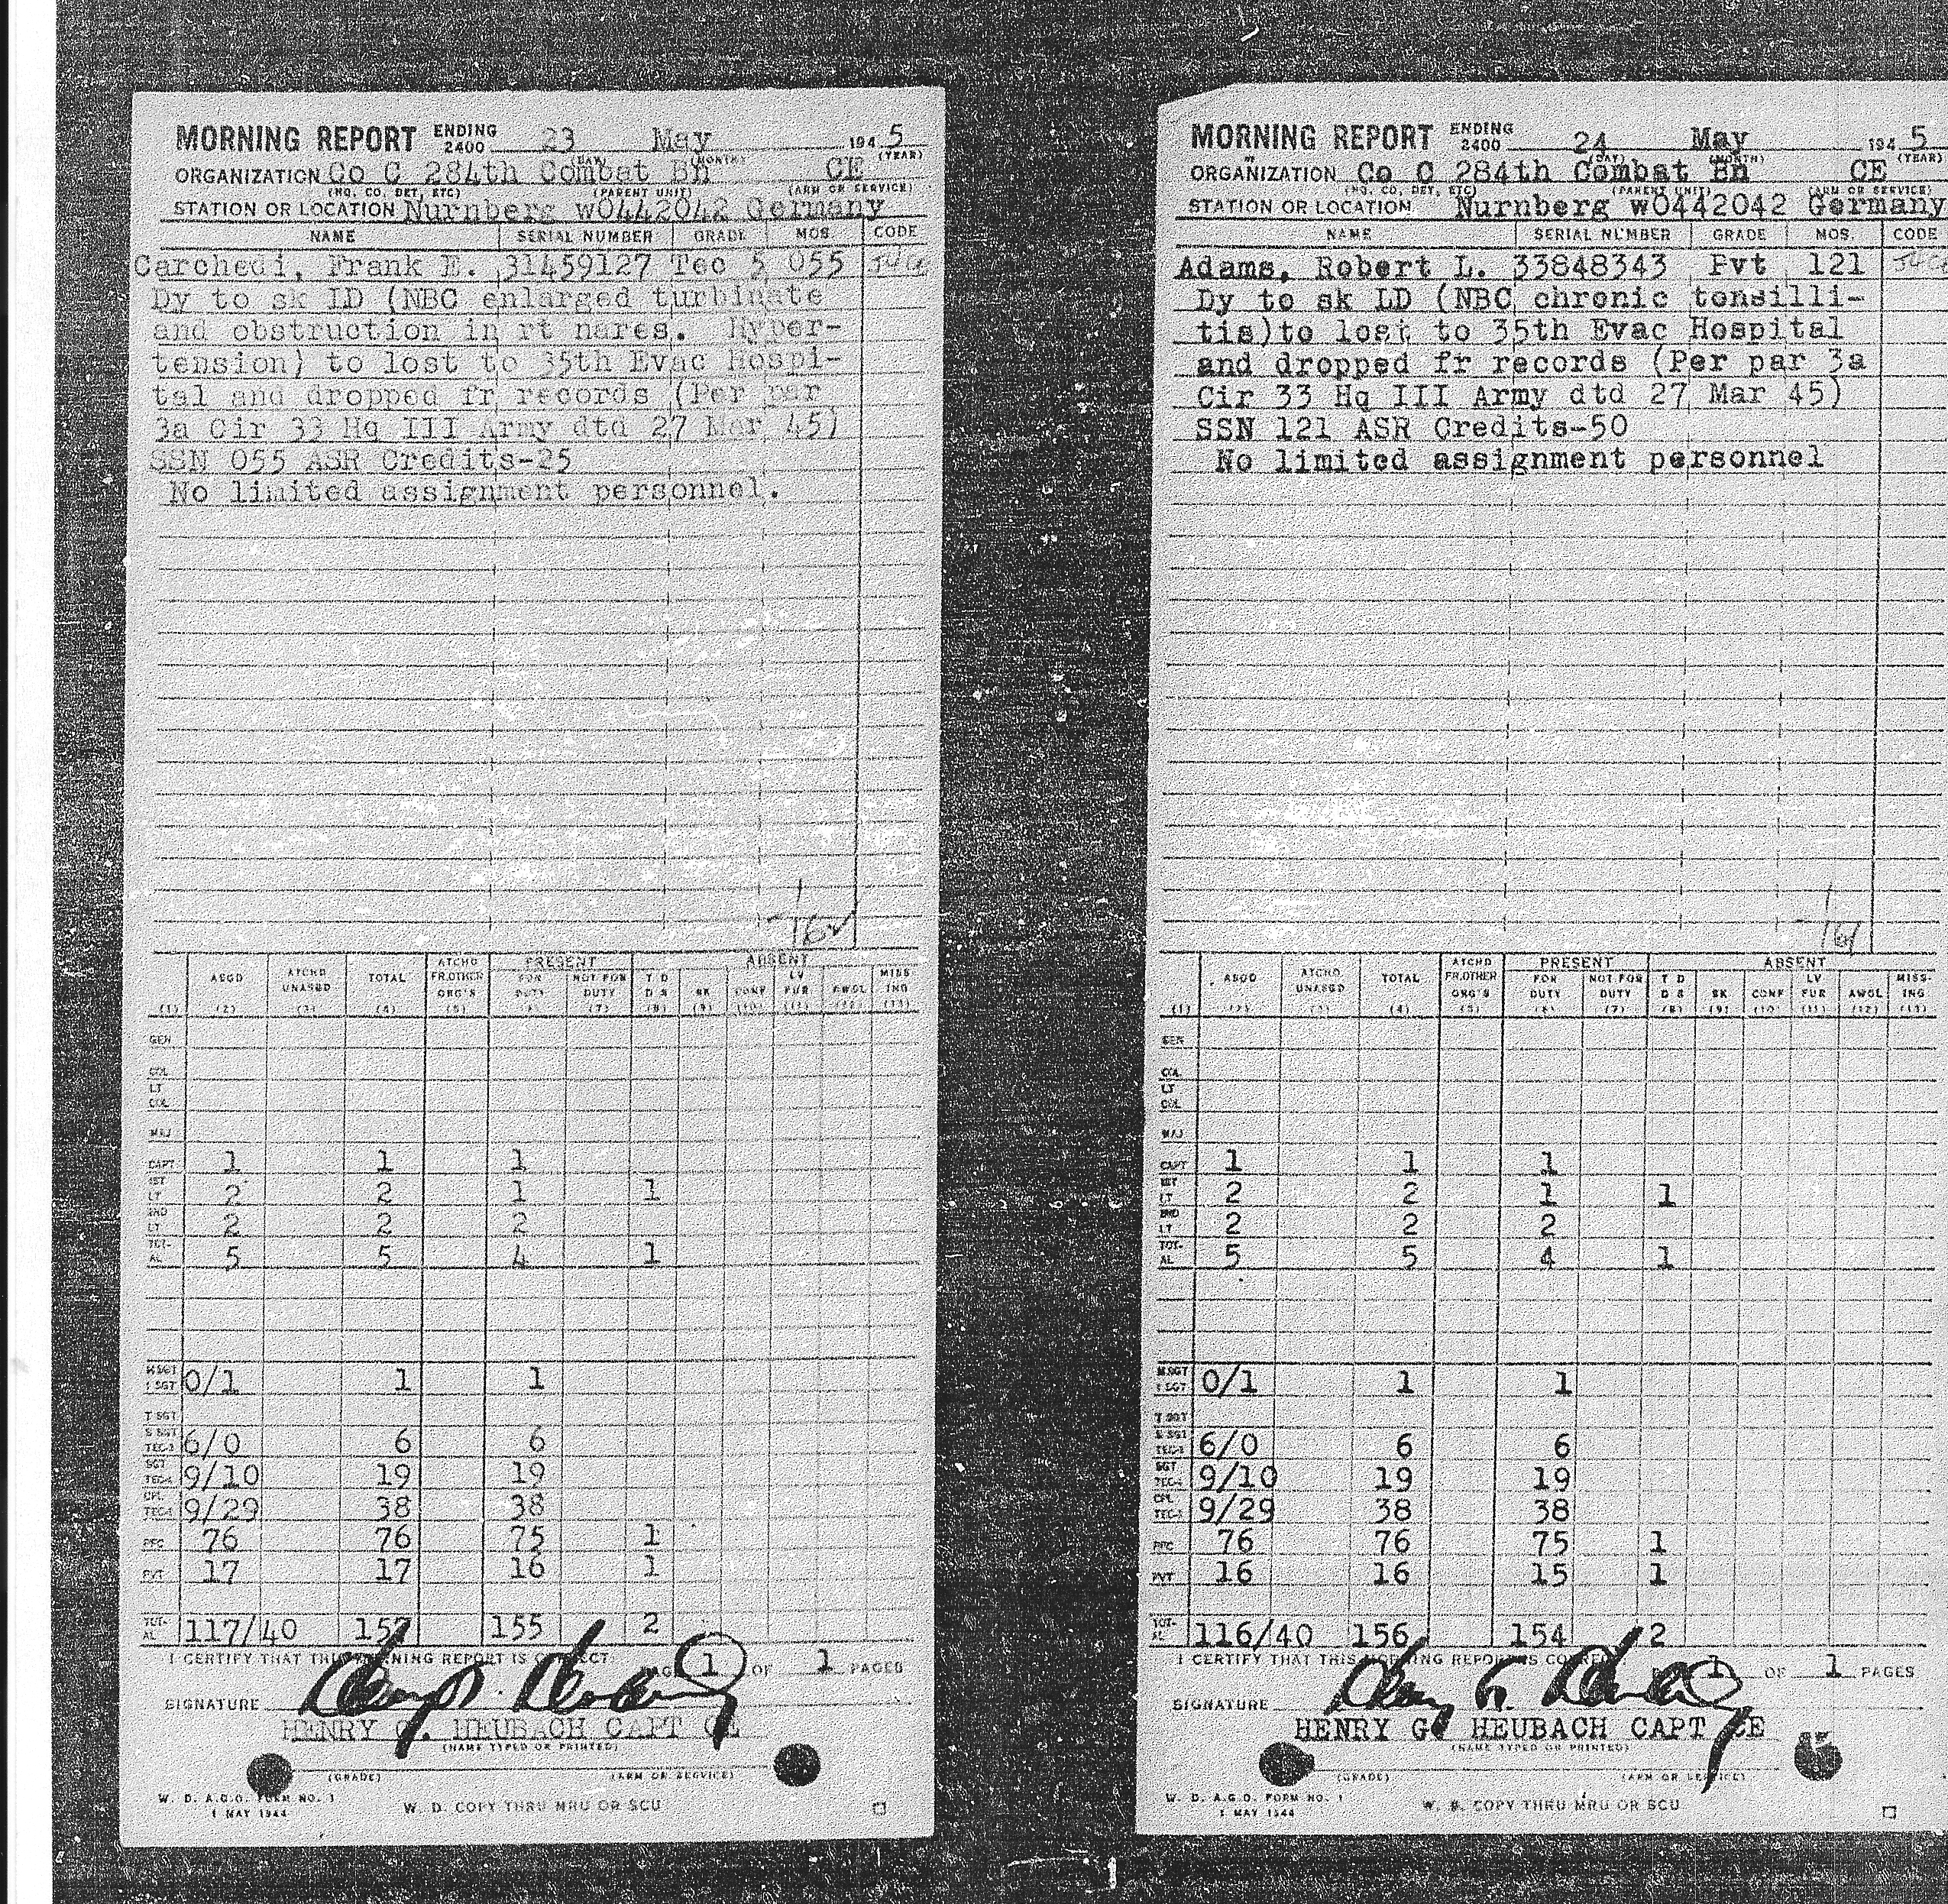 MORNING REPORT ENDING 2400 23 May 1945
(DAY) (MONTH) (YEAR)
ORGANIZATION Co C 284th Combat Bn CE
(HQ. CO. DET, ETC) (PARENT UNIT) (ARM OR SERVICE)
STATION OR LOCATION Nurnberg w0442042 Germany
NAME SERIAL NUMBER GRADE MOS CODE
Carchedi, Frank E. 31459127 Tec 5 055
Dy to sk LD (NBC enlarged turbinate
and obstruction in rt nares. Hyper-
tension) to lost to 35th Evac Hospi-
tal and dropped fr records (Per par
3a Cir 33 Hq III Army dtd 27 Mar 45)
SSN 055 ASR Credits-25
No limited assignment personnel.
ASGD ATCHD UNASGD TOTAL ATCHD FR.OTHER ORG'S PRESENT FOR DUTY NOT FOR DUTY ABSENT T D D S SK CONF LV FUR AWOL MISS ING
(1) (2) (3) (4) (5) (6) (7) (8) (9) (10) (11) (12) (13)
GEN
COL
LT COL
MAJ
CAPT 1 1 1
1ST LT 2 2 1 1
2ND LT 2 2 2
TOT-AL 5 5 4 1
M SGT 1 SGT 0/1 1 1
T SGT
S SGT TEC-3 6/0 6 6
SGT TEC-4 9/10 19 19
CPL TEC-5 9/29 38 38
PFC 76 76 75 1
PVT 17 17 16 1
TOT-AL 117/40 157 155 2
I CERTIFY THAT THIS MORNING REPORT IS CORRECT PAGE 1 OF 1 PAGES
SIGNATURE
HENRY G. HEUBACH CAPT CE
(NAME TYPED OR PRINTED)
(GRADE) (ARM OR SERVICE)
W. D. A.G.O. FORM NO. 1
1 MAY 1944
W. D. COPY THRU MRU OR SCU
MORNING REPORT ENDING 2400 24 May 1945
(DAY) (MONTH) (YEAR)
ORGANIZATION Co C 284th Combat Bn CE
(HQ. CO, DET, ETC) (PARENT UNIT) (ARM OR SERVICE)
STATION OR LOCATION Nurnberg w0442042 Germany
NAME SERIAL NUMBER GRADE MOS. CODE
Adams, Robert L. 33848343 Pvt 121
Dy to sk LD (NBC chronic tonsilli-
tis)to lost to 35th Evac Hospital
and dropped fr records (Per par 3a
Cir 33 Hq III Army dtd 27 Mar 45)
SSN 121 ASR Credits-50
No limited assignment personnel
ASGD ATCHD UNASGD TOTAL ATCHD FR.OTHER ORG'S PRESENT FOR DUTY NOT FOR DUTY ABSENT T D D S SK CONF LV FUR AWOL MISS-ING
(1) (2) (3) (4) (5) (6) (7) (8) (9) (10) (11) (12) (13)
GEN
COL
LT COL
MAJ
CAPT 1 1 1
1ST LT 2 2 1 1
2ND LT 2 2 2
TOT-AL 5 5 4 1
M SGT 1 SGT 0/1 1 1
T SGT
S SGT TEC-3 6/0 6 6
SGT TEC-4 9/10 19 19
CPL TEC-5 9/29 38 38
PFC 76 76 75 1
PVT 16 16 15 1
TOT-AL 116/40 156 154 2
I CERTIFY THAT THIS MORNING REPORT IS CORRECT 1 OF 1 PAGES
SIGNATURE
HENRY G. HEUBACH CAPT CE
(NAME TYPED OR PRINTED)
(GRADE) (ARM OR SERVICE)
W. D. A.G.O. FORM NO. 1
1 MAY 1944
W. D. COPY THRU MRU OR SCU